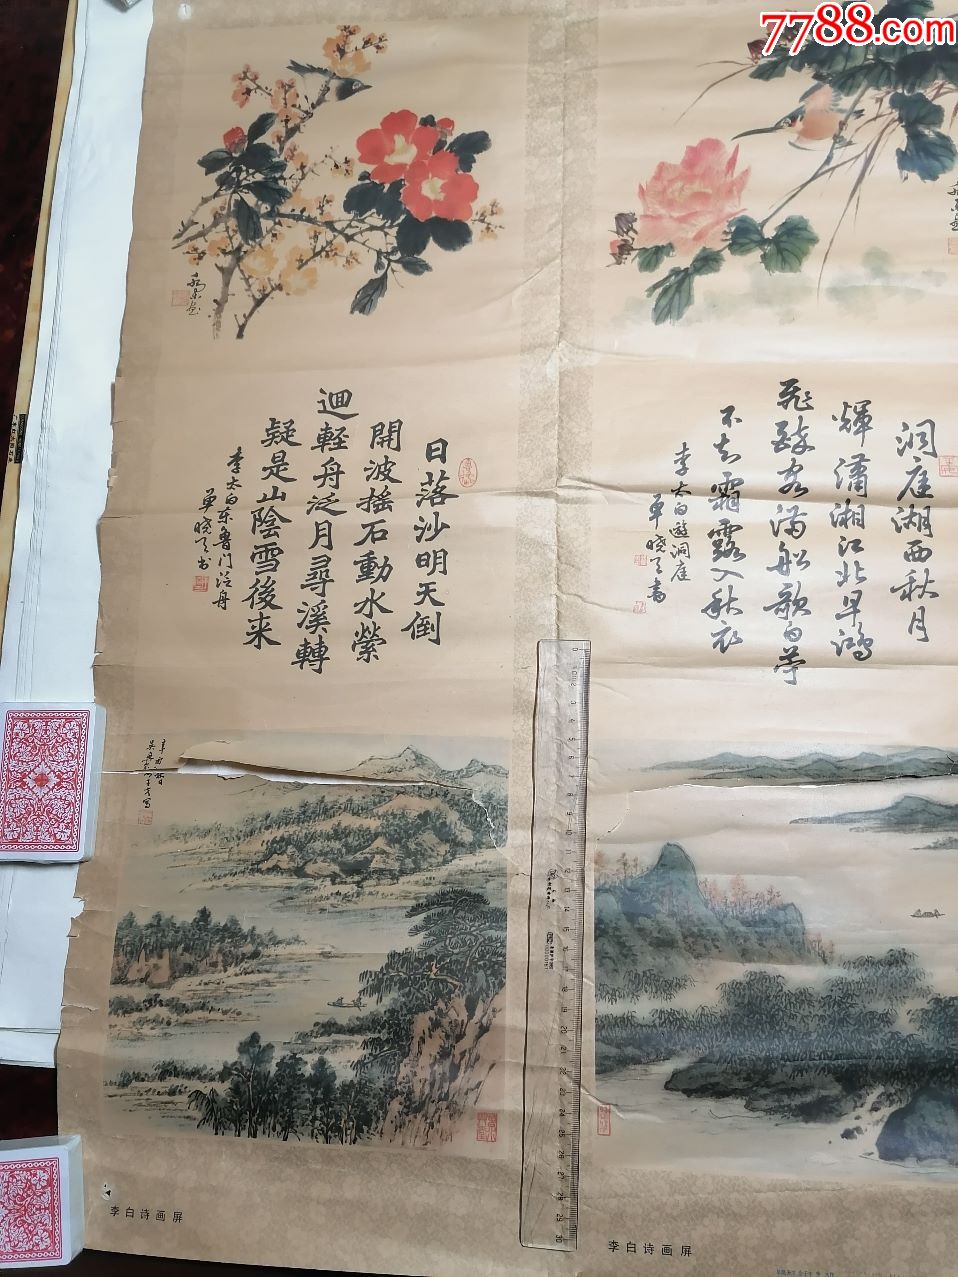 7788.com
洞庭湖西秋月
輝瀟湘江北早鴻
飛醉客滿船歌白苧
不知霜露入秋衣
李太白遊洞庭
單曉天書
日落沙明天倒
開波搖石動水縈
迴輕舟泛月尋溪轉
疑是山陰雪後来
李太白东魯門泛舟
單曉天书
李白诗画屏
李白诗画屏